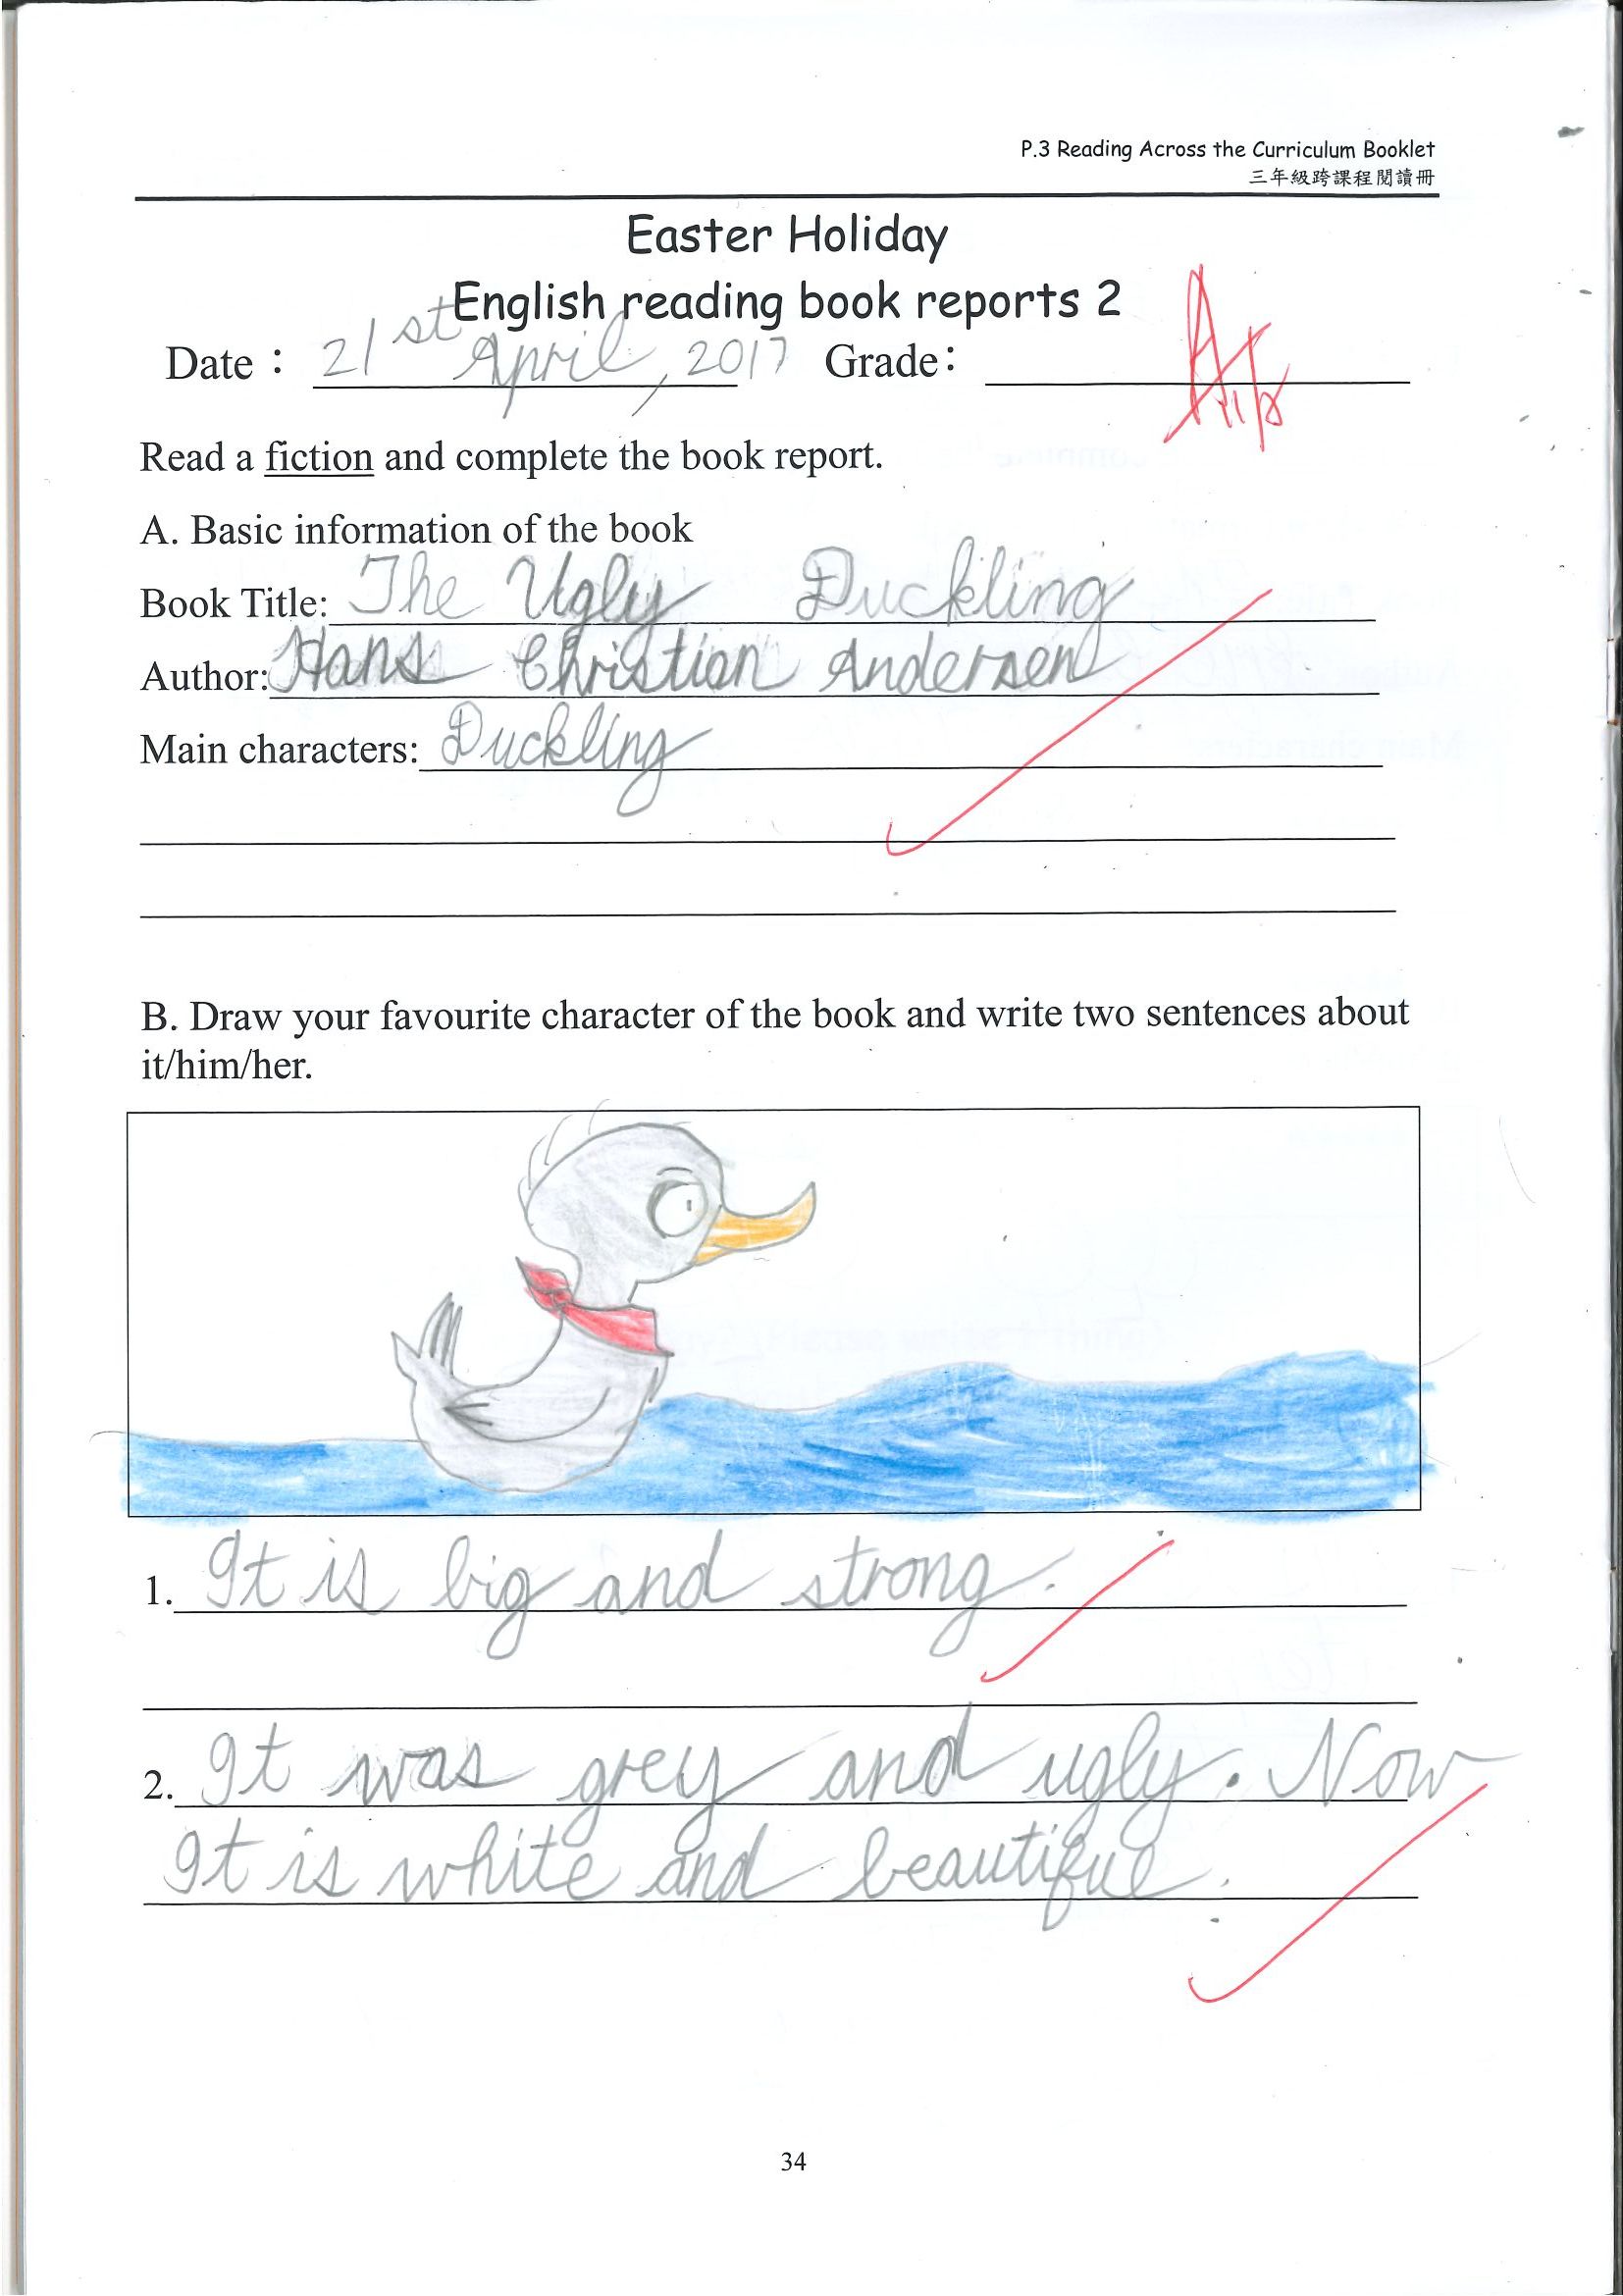 P.3 Reading Across the Curriculum Booklet
三年級跨課程閱讀冊
Easter Holiday
English reading book reports 2
Date： 21st April, 2017 Grade：
Read a fiction and complete the book report.
A. Basic information of the book
Book Title: The Ugly Duckling
Author: Hans Christian Andersen
Main characters: Duckling
B. Draw your favourite character of the book and write two sentences about
it/him/her.
1. It is big and strong.
2. It was grey and ugly. Now
It is white and beautiful.
34